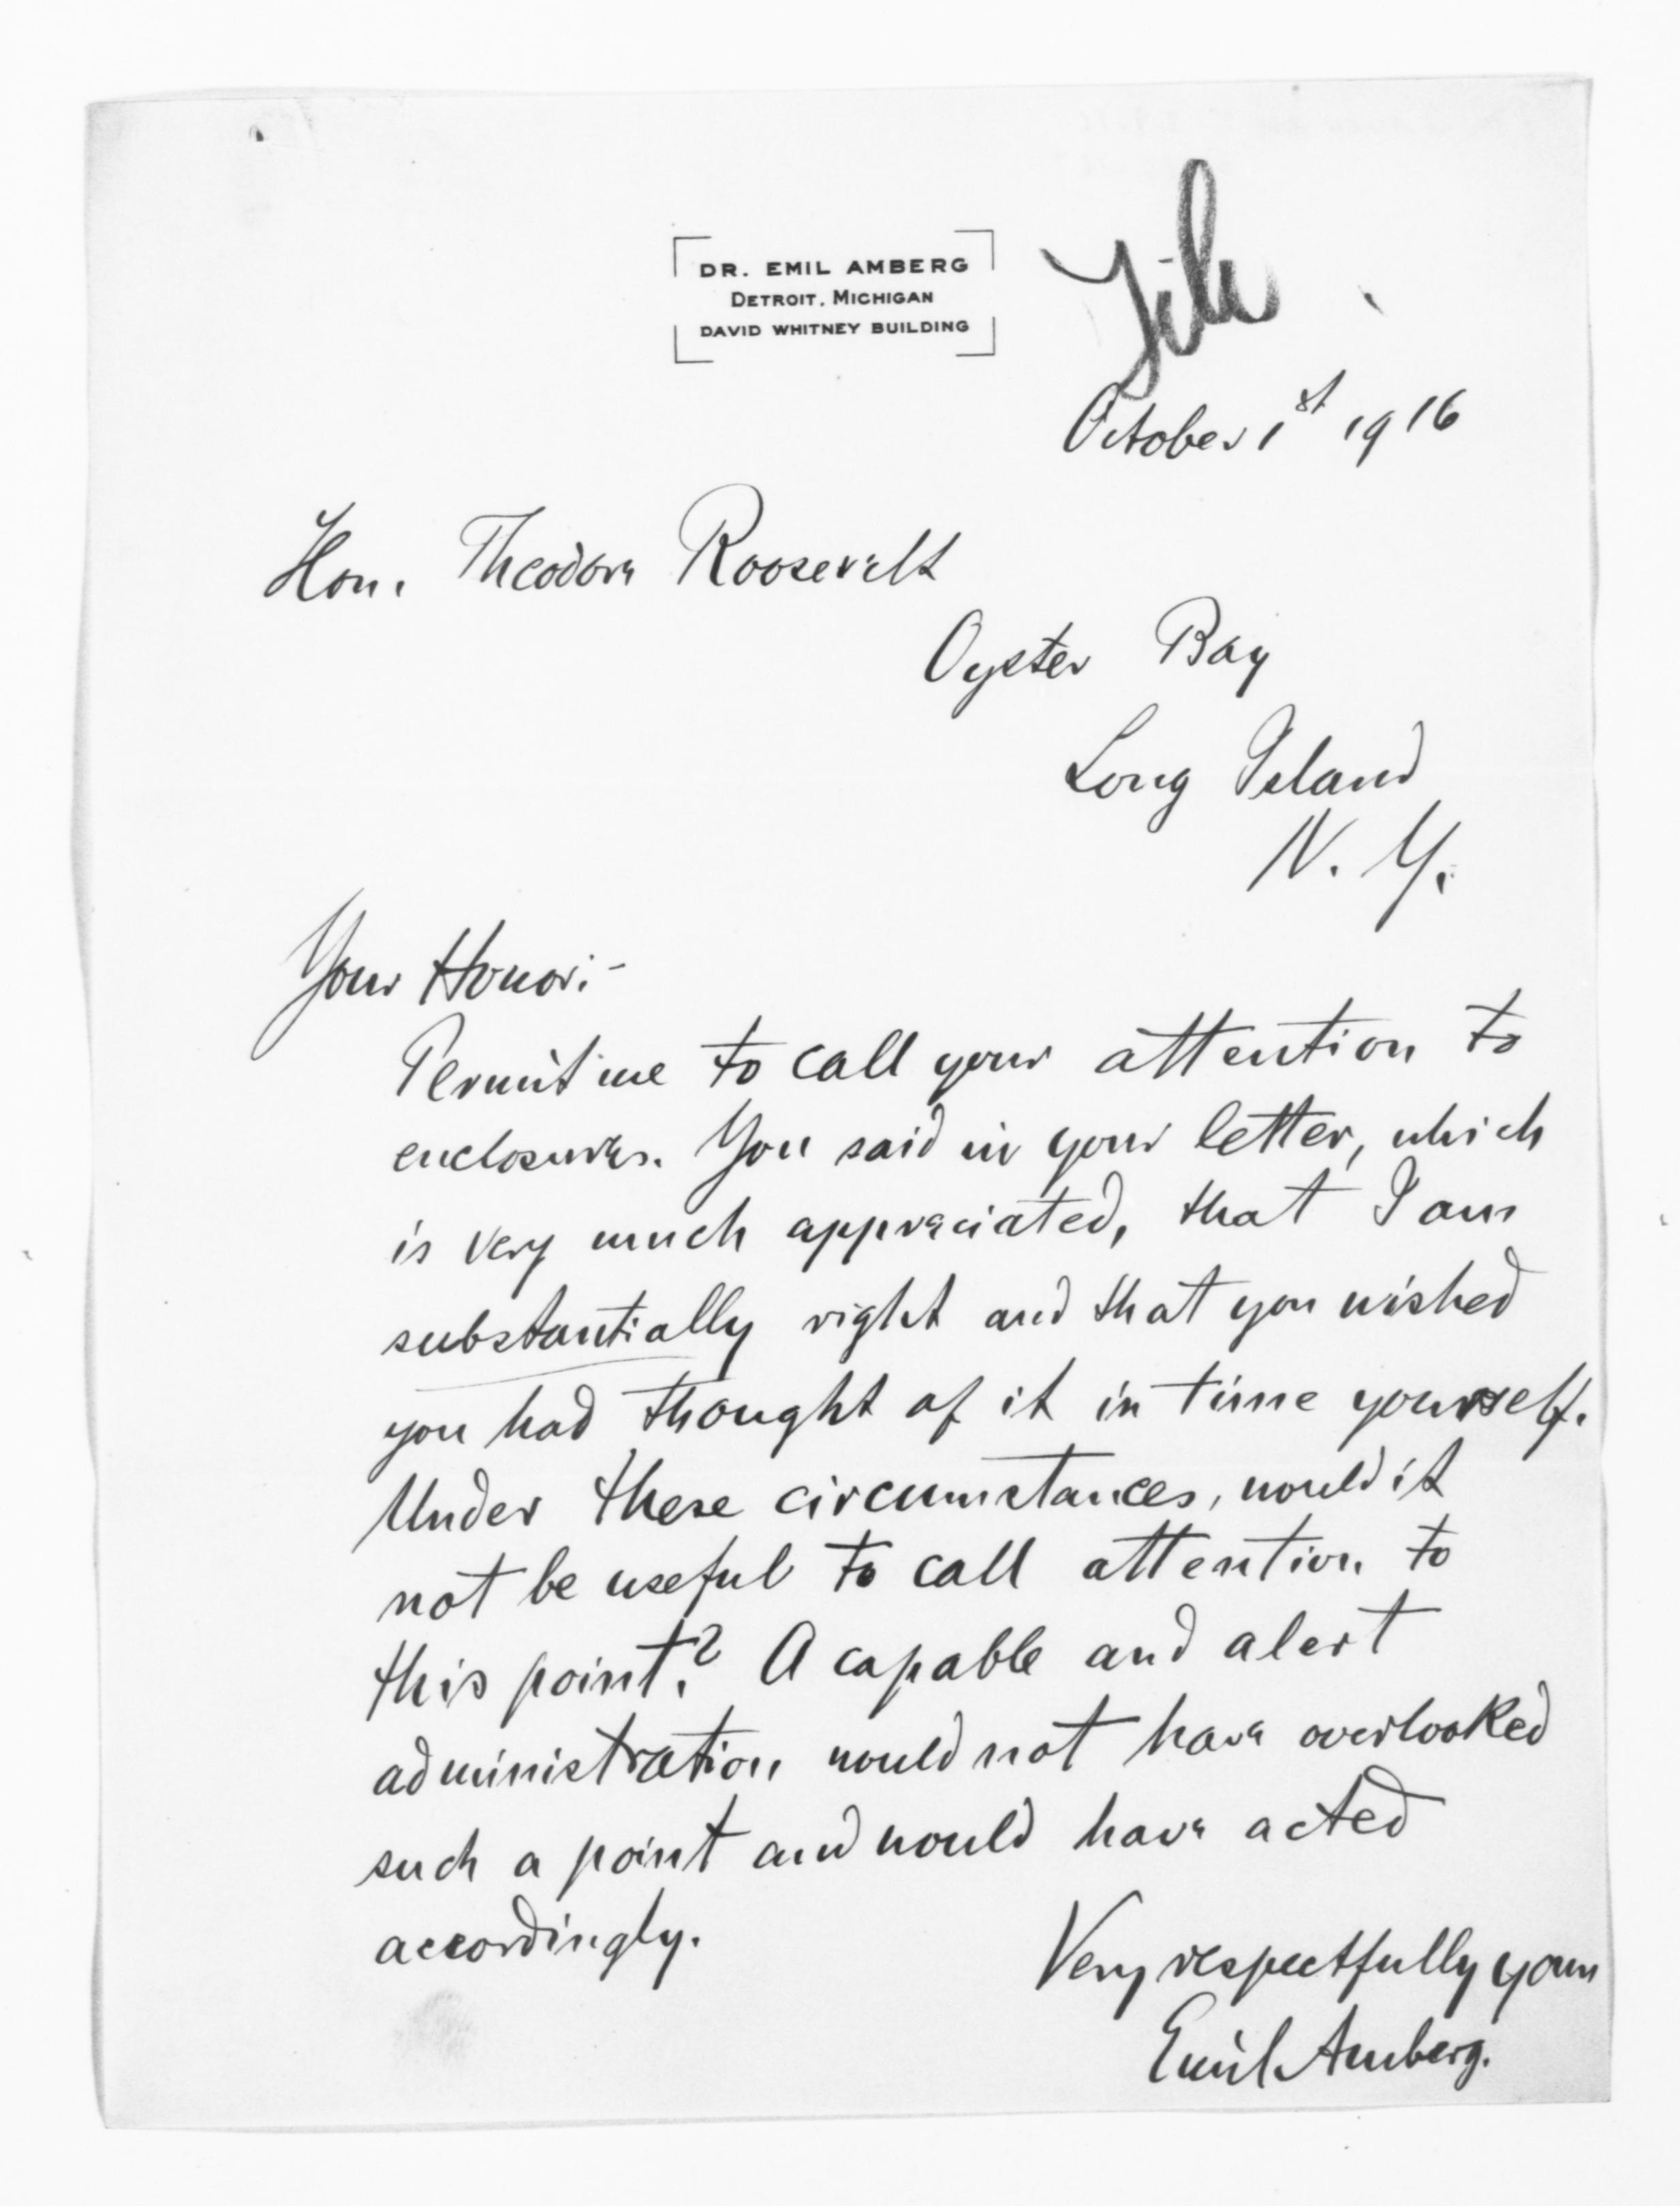 DR. EMIL AMBERG
DETROIT, MICHIGAN
DAVID WHITNEY BUILDING
File
October 1st 1916
Hon. Theodore Roosevelt
Oyster Bay
Long Island
N. Y.
Your Honor:-
Permit me to call your attention to
enclosures. You said in your letter, which
is very much appreciated, that I am
substantially right and that you wished
you had thought of it in time yourself.
Under these circumstances, would it
not be useful to call attention to
this point? A capable and alert
administration would not have overlooked
such a point and would have acted
accordingly.
Very respectfully yours
Emil Amberg.